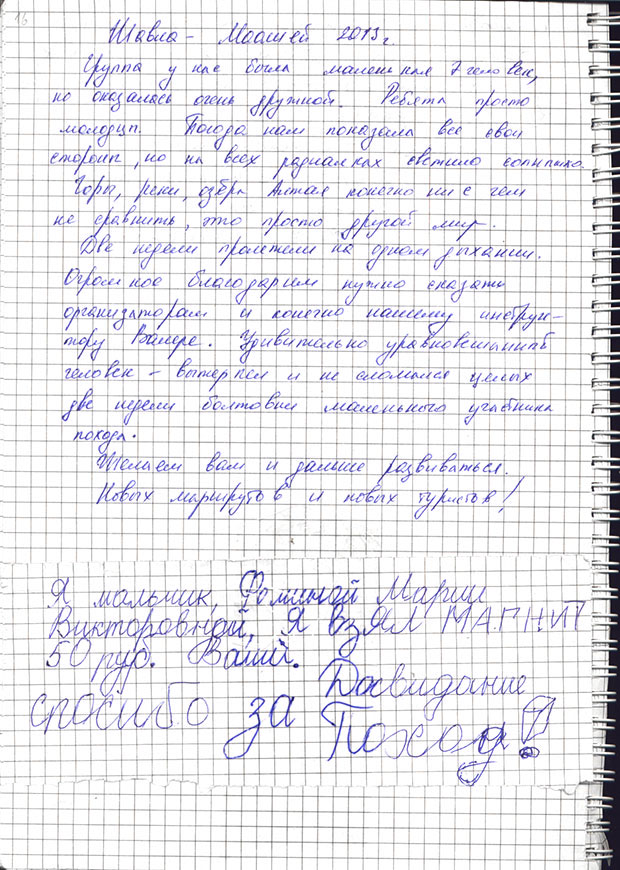 16
Шавла - Маашей 2013 г.
Группа у нас была маленькая 7 человек,
но оказалась очень дружной. Ребята просто
молодцы. Погода нам показала все свои
стороны, но на всех радиалках светило солнышко.
Горы, реки, озёра Алтая конечно ни с чем
не сравнить, это просто другой мир.
Две недели пролетели на одном дыхании.
Огромное благодарим нужно сказать
организаторам и конечно нашему инструк-
тору Валере. Удивительно уравновешанный
человек - вытерпел и не сломался целых
две недели болтовни маленького участника
похода.
Желаем вам и дальше развиваться.
Новых маршрутов и новых туристов!
Я мальчик, Фоминой Марии
Викторовной, Я взял МАГНИТ
50 руб. Ваший.
Досвидание
спосибо за Поход!